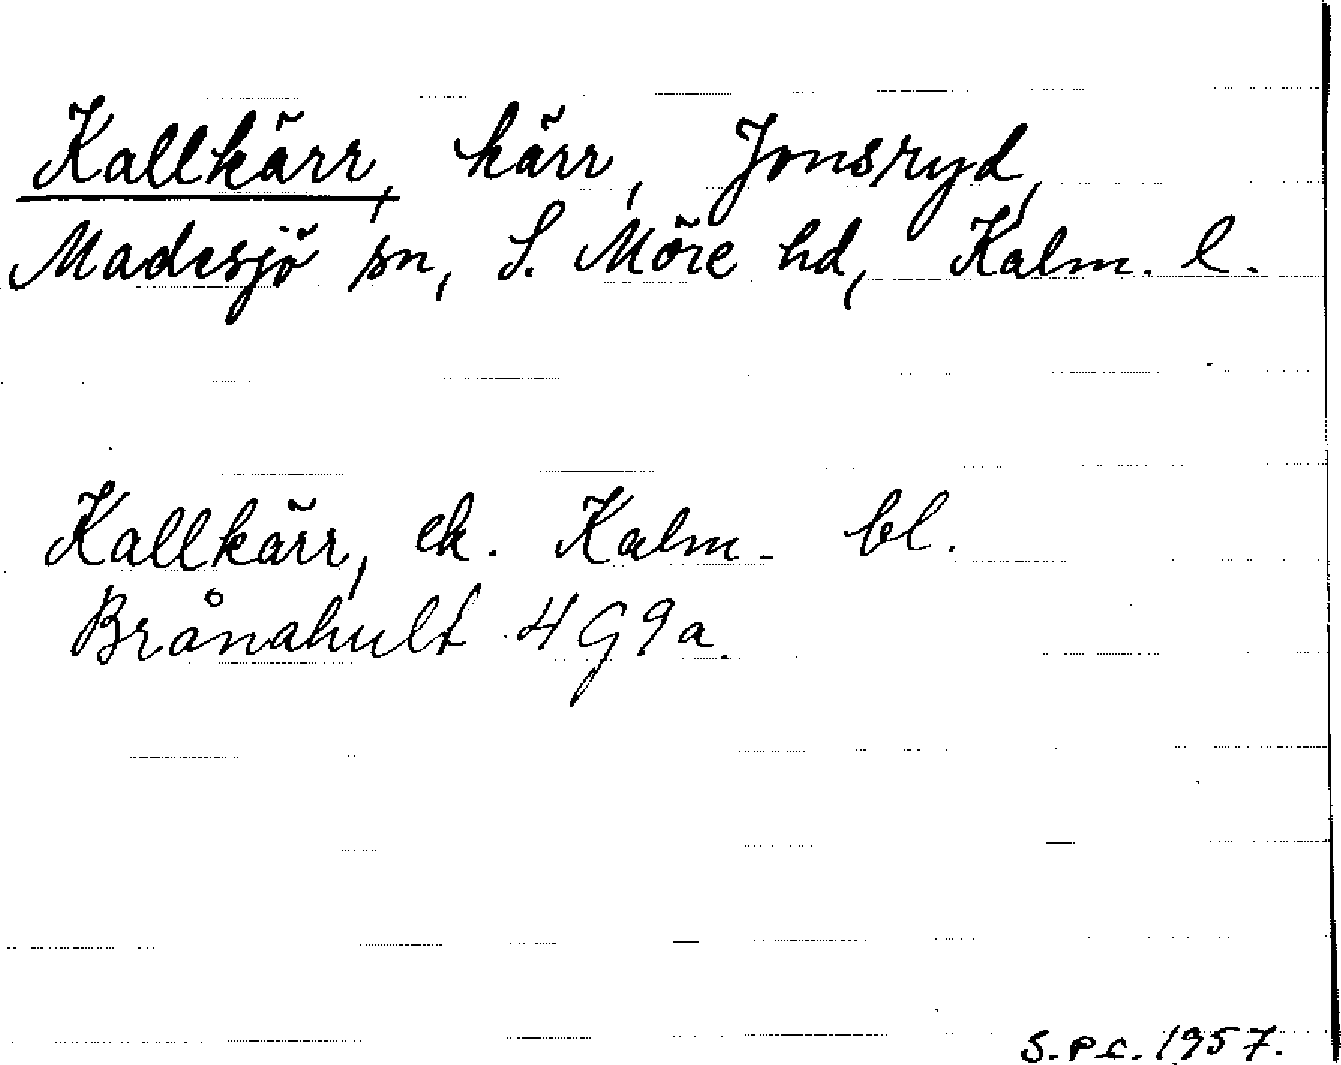 Kallkärr, kärr, Jonsryd,
Madesjö sn, S. Möre hd, Kalm. l.
Kallkärr, ek. Kalm. bl.
Brånahult 4G9a.
S.P.C. 1957.